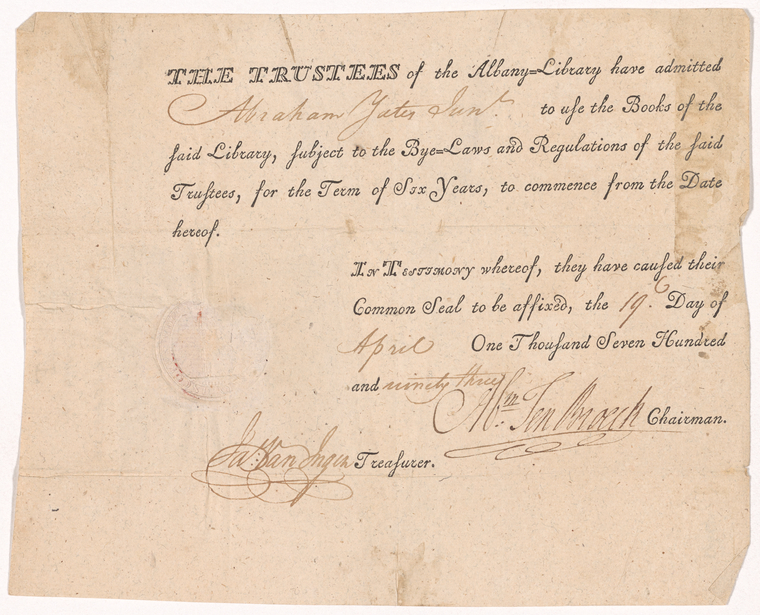 THE TRUSTEES of the Albany=Library have admitted
Abraham Yates Junr. to uſe the Books of the
ſaid Library, ſubject to the Bye=Laws and Regulations of the ſaid
Truſtees, for the Term of Six Years, to commence from the Date
hereof.
IN TESTIMONY whereof, they have cauſed their
Common Seal to be affixed, the 19. Day of
April One Thouſand Seven Hundred
and ninety three
Abm. Ten Broeck Chairman.
Ja: Van Ingen Treaſurer.